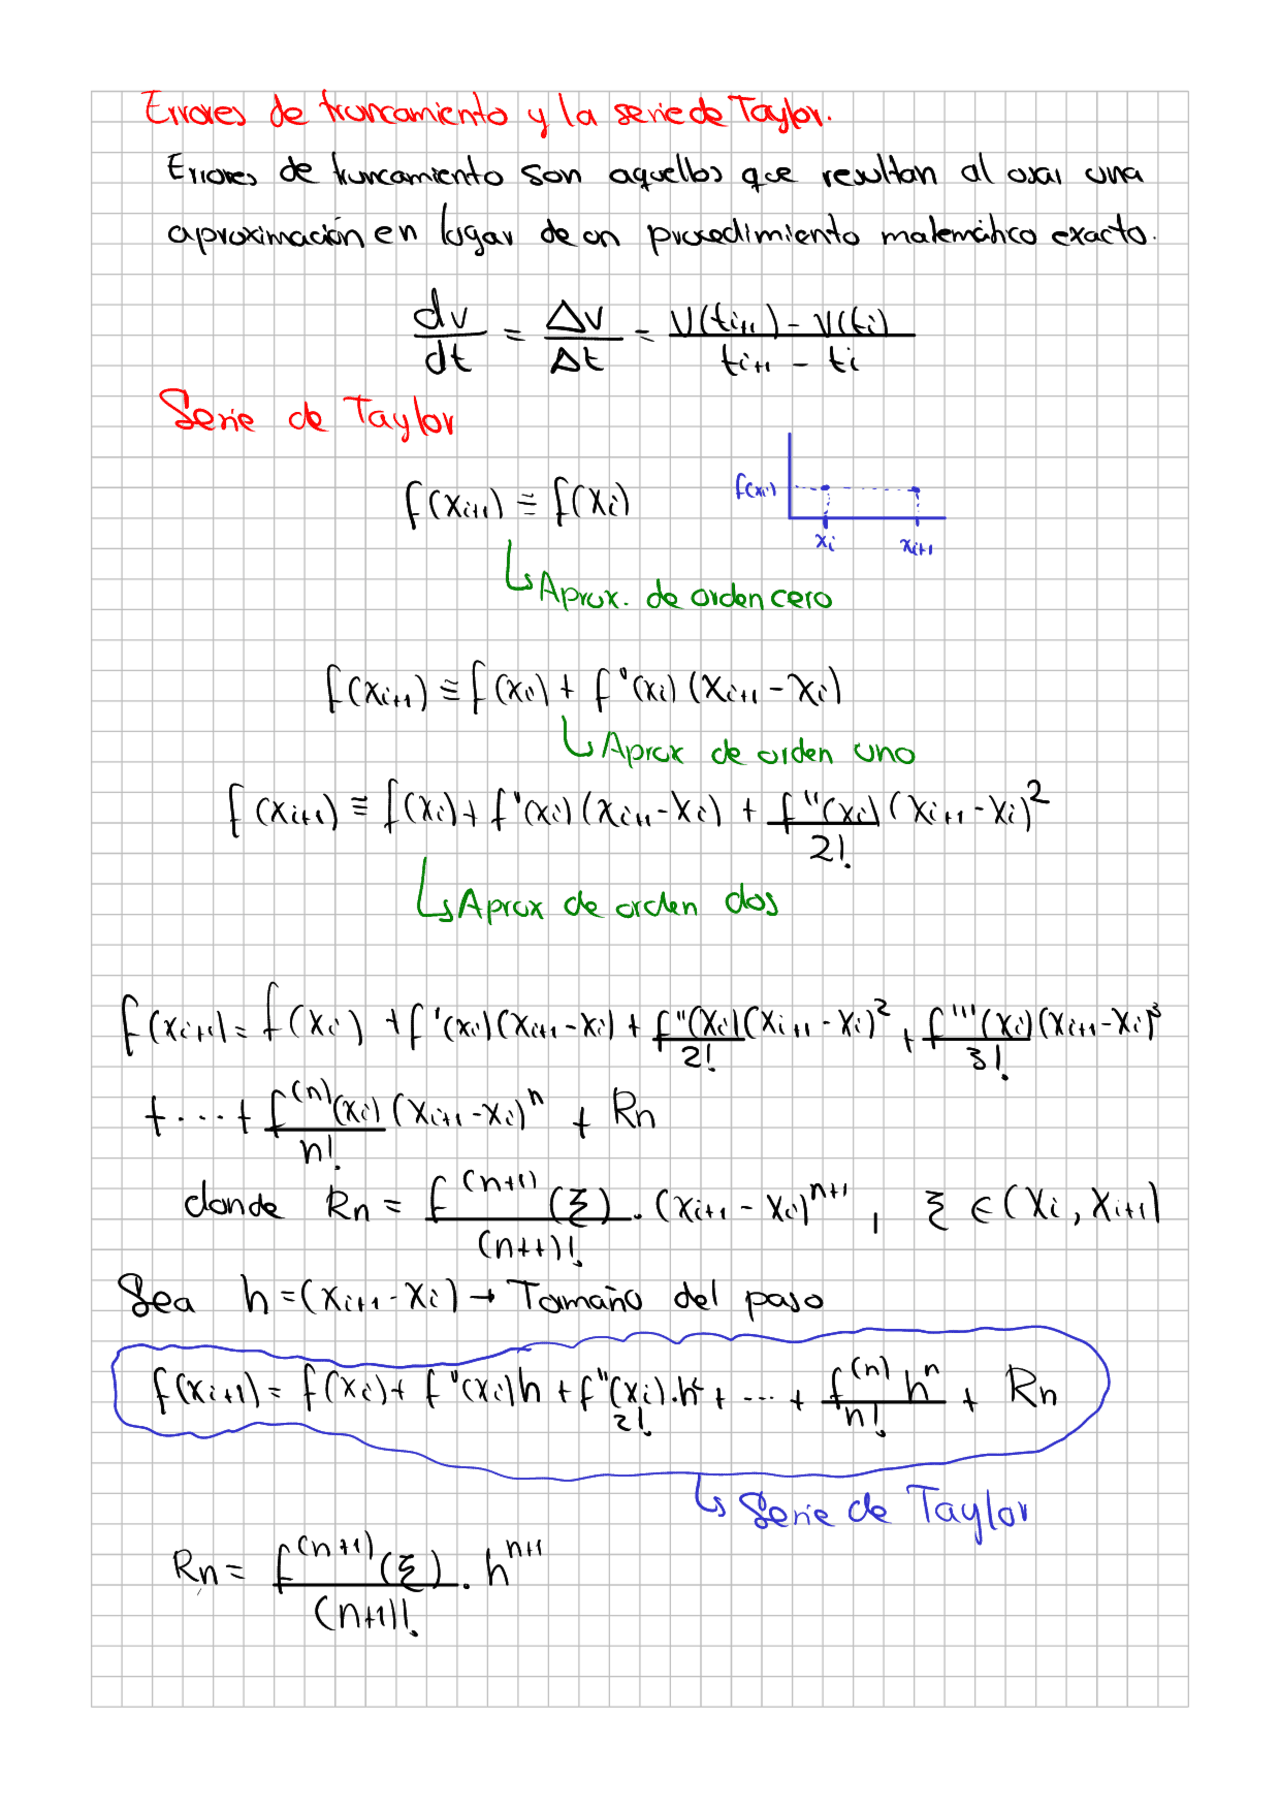 Errores de truncamiento y la serie de Taylor.
Errores de truncamiento son aquellos que resultan al usar una
aproximación en lugar de un procedimiento matemático exacto.
dv/dt = Δv/Δt = (V(ti+1) - V(ti))/(ti+1 - ti)
Serie de Taylor
f(xi+1) ≅ f(xi)
f(xi)
xi xi+1
↳ Aprox. de orden cero
f(xi+1) ≅ f(xi) + f'(xi)(xi+1 - xi)
↳ Aprox de orden uno
f(xi+1) ≅ f(xi) + f'(xi)(xi+1 - xi) + f''(xi)/2! (xi+1 - xi)²
↳ Aprox de orden dos
f(xi+1) = f(xi) + f'(xi)(xi+1 - xi) + f''(xi)/2! (xi+1 - xi)² + f'''(xi)/3! (xi+1 - xi)³
+ ... + f⁽ⁿ⁾(xi)/n! (xi+1 - xi)ⁿ + Rn
donde Rn = f⁽ⁿ⁺¹⁾(ξ)/(n+1)! . (xi+1 - xi)ⁿ⁺¹ , ξ ∈ (xi, xi+1)
Sea h = (xi+1 - xi) → Tamaño del paso
f(xi+1) = f(xi) + f'(xi)h + f''(xi)/2! . h² + ... + f⁽ⁿ⁾/n! hⁿ + Rn
↳ Serie de Taylor
Rn = f⁽ⁿ⁺¹⁾(ξ)/(n+1)! . hⁿ⁺¹